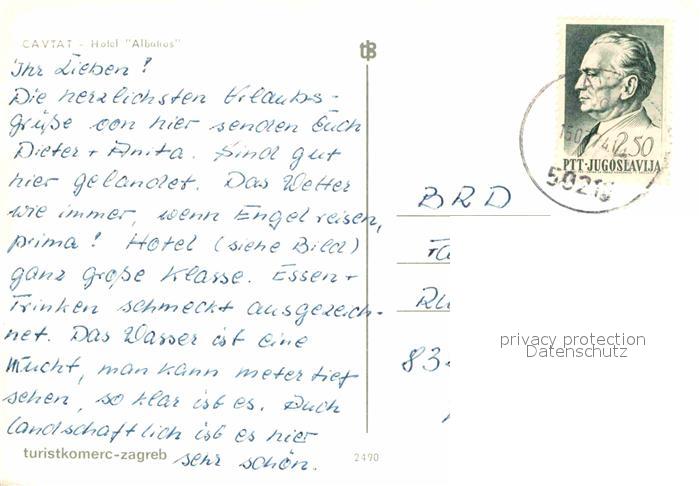 CAVTAT - Hotel "Albatros"
Ihr Lieben!
Die herzlichsten Urlaubs-
grüße von hier senden Euch
Dieter + Anita. Sind gut
hier gelandet. Das Wetter
wie immer, wenn Engel reisen,
prima! Hotel (siehe Bild)
ganz große Klasse. Essen +
Trinken schmeckt ausgezeich-
net. Das Wasser ist eine
Wucht, man kann meter tief
sehen, so klar ist es. Auch
landschaftlich ist es hier
sehr schön.
turistkomerc-zagreb
2490
tB
2.50
PTT-JUGOSLAVIJA
BRD
83
privacy protection
Datenschutz